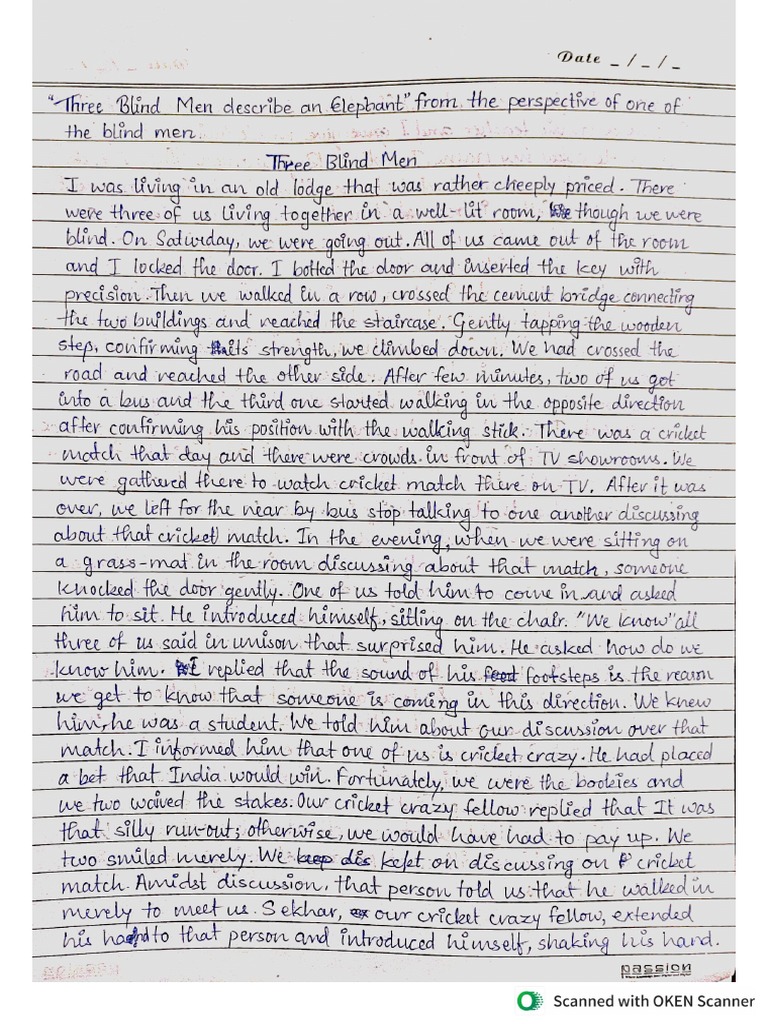 Date _ / _ / _
"Three Blind Men describe an Elephant" from the perspective of one of
the blind men.
Three Blind Men
I was living in an old lodge that was rather cheeply priced. There
were three of us living together in a well-lit room, though we were
blind. On Saturday, we were going out. All of us came out of the room
and I locked the door. I bolted the door and inserted the key with
precision. Then we walked in a row, crossed the cement bridge connecting
the two buildings and reached the staircase. Gently tapping the wooden
step, confirming its strength, we climbed down. We had crossed the
road and reached the other side. After few minutes, two of us got
into a bus and the third one started walking in the opposite direction
after confirming his position with the walking stick. There was a cricket
match that day and there were crowds in front of TV showrooms. We
were gathered there to watch cricket match there on TV. After it was
over, we left for the near by bus stop talking to one another discussing
about that cricket match. In the evening, when we were sitting on
a grass-mat in the room discussing about that match, someone
knocked the door gently. One of us told him to come in and asked
him to sit. He introduced himself, sitting on the chair. "We know" all
three of us said in unison that surprised him. He asked how do we
know him. I replied that the sound of his footsteps is the reason
we get to know that someone is coming in this direction. We knew
him, he was a student. We told him about our discussion over that
match. I informed him that one of us is cricket crazy. He had placed
a bet that India would win. Fortunately, we were the bookies and
we two waived the stakes. Our cricket crazy fellow replied that It was
that silly run-out; otherwise, we would have had to pay up. We
two smiled merely. We kept on discussing on cricket
match. Amidst discussion, that person told us that he walked in
merely to meet us. Sekhar, our cricket crazy fellow, extended
his hand to that person and introduced himself, shaking his hand.
passion
Scanned with OKEN Scanner